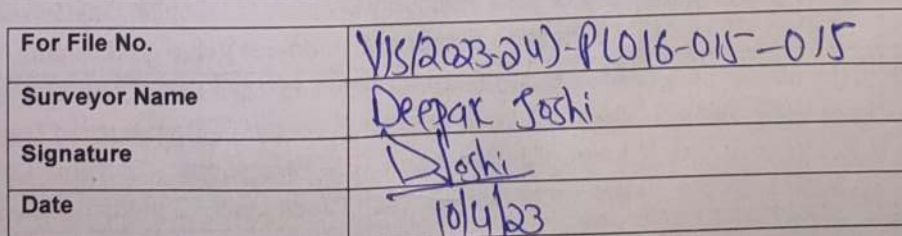 For File No. VIS(2023-24)-PL016-015-015
Surveyor Name Deepak Joshi
Signature DJoshi
Date 10/4/23